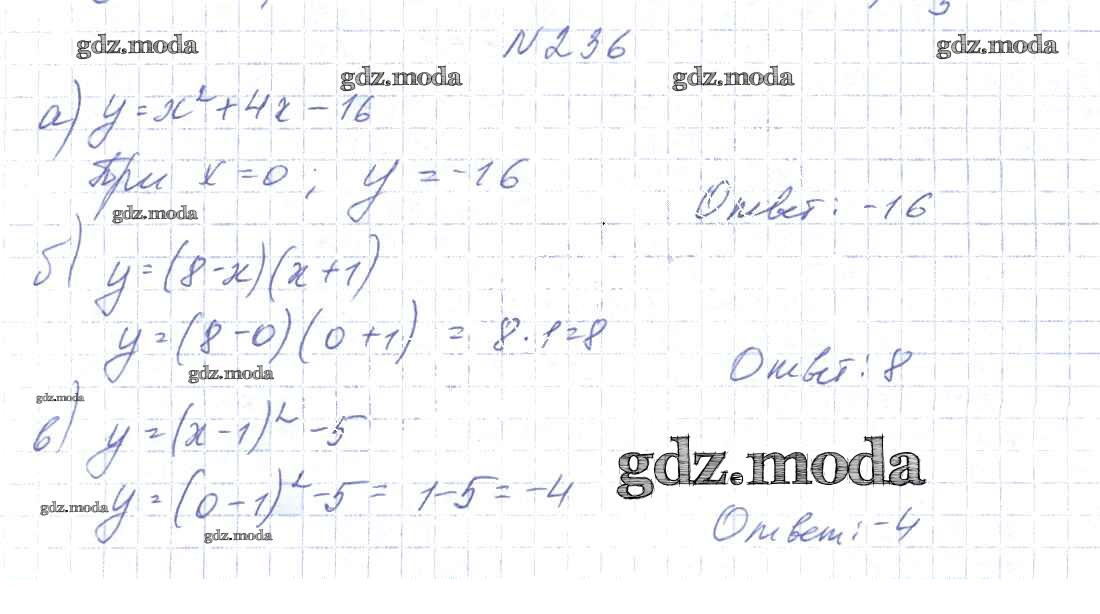 N 236
gdz.moda gdz.moda
gdz.moda gdz.moda
а) y = x² + 4x - 16
При x = 0 ; y = -16
gdz.moda
Ответ: -16
б) y = (8 - x)(x + 1)
y = (8 - 0)(0 + 1) = 8 · 1 = 8
gdz.moda
Ответ: 8
gdz.moda
в) y = (x - 1)² - 5
gdz.moda
gdz.moda
y = (0 - 1)² - 5 = 1 - 5 = -4
gdz.moda
Ответ: -4